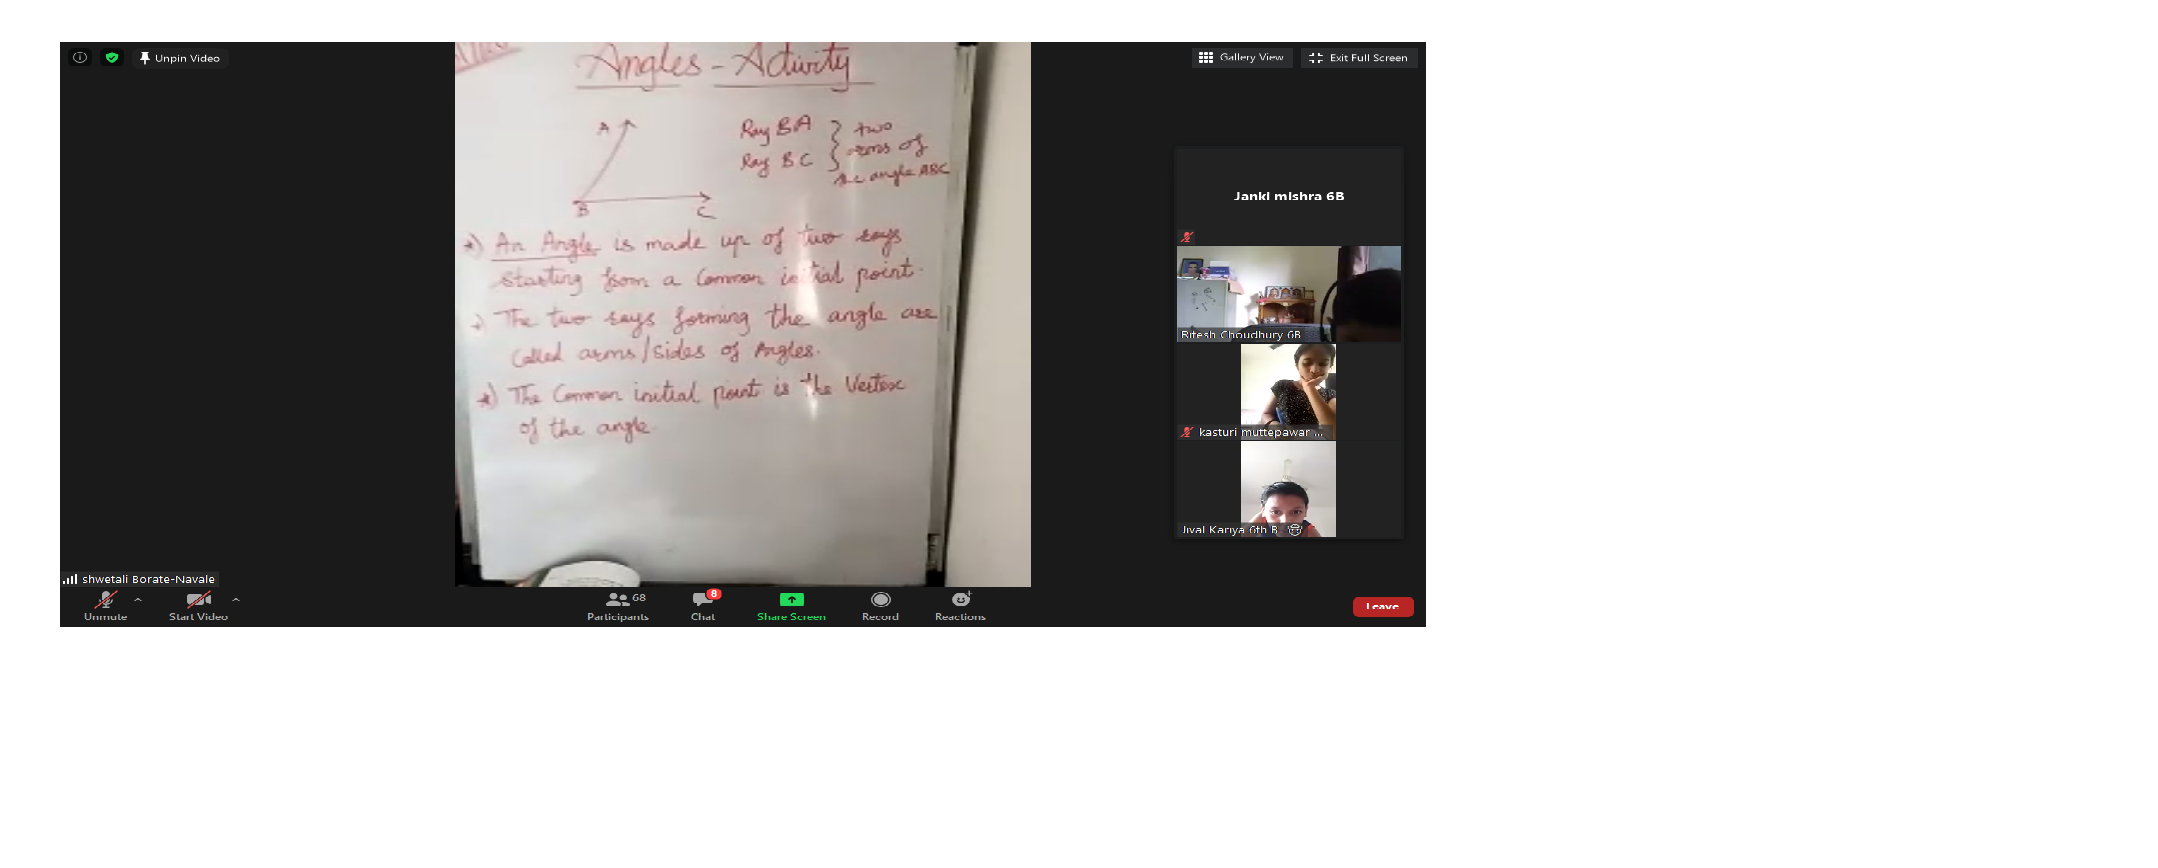 Unpin Video
Gallery View
Exit Full Screen
Angles - Activity
A
B
C
Ray BA } two
Ray BC } arms of
the angle ABC
*) An Angle is made up of two rays
starting from a common initial point.
*) The two rays forming the angle are
called arms/sides of Angles.
*) The Common initial point is the Vertex
of the angle.
Janki mishra 6B
Ritesh Choudhury 6B
kasturi muttepawar ...
Jival Kariya 6th B
shwetali Borate-Navale
Unmute
Start Video
68
Participants
8
Chat
Share Screen
Record
Reactions
Leave